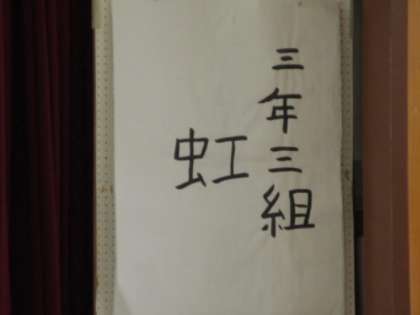 三年三組
虹